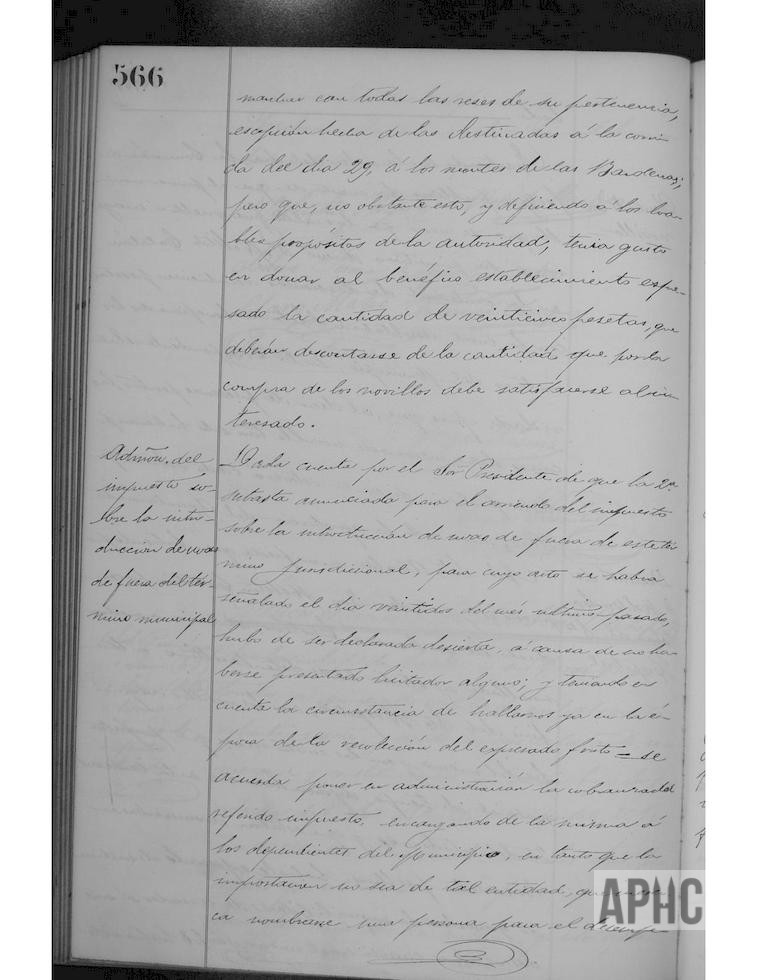 566
marchar con todas las reses de su pertenencia,
escepción hecha de las destinadas á la corri-
da del dia 29, á los montes de las Bardenas;
pero que, no obstante esto, y defiriendo á los loa-
bles propósitos de la autoridad, tenia gusto
en donar al benéfico establecimiento espre-
sado la cantidad de veinticinco pesetas, que
deberán descontarse de la cantidad que por la
compra de los novillos debe satisfacerse al in-
teresado.
Admón. del
impuesto so-
bre la intro-
duccion de uvas
de fuera del tér-
mino municipal
Dada cuenta por el Sor Presidente de que la 2ª
subasta anunciada para el arriendo del impuesto
sobre la introducción de uvas de fuera de este tér-
mino jurisdiccional, para cuyo acto se habia
señalado el dia veintidos del mes último pasado,
hubo de ser declarada desierta, á causa de no ha-
berse presentado licitador alguno; y teniendo en
cuenta la circunstancia de hallarnos ya en la é-
poca de la recolección del expresado fruto = se
acuerda poner en administración la cobranza del
referido impuesto, encargando de la misma á
los dependientes del Municipio, en tanto que la
importancia no sea de tal entidad, que
ca nombrarse una persona para el desemp
APHC